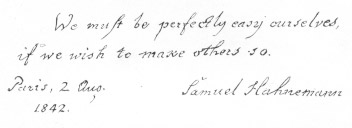 We muſt be perfectly easy ourselves,
if we wish to make others so.
Paris, 2 Aug. Samuel Hahnemann
1842.